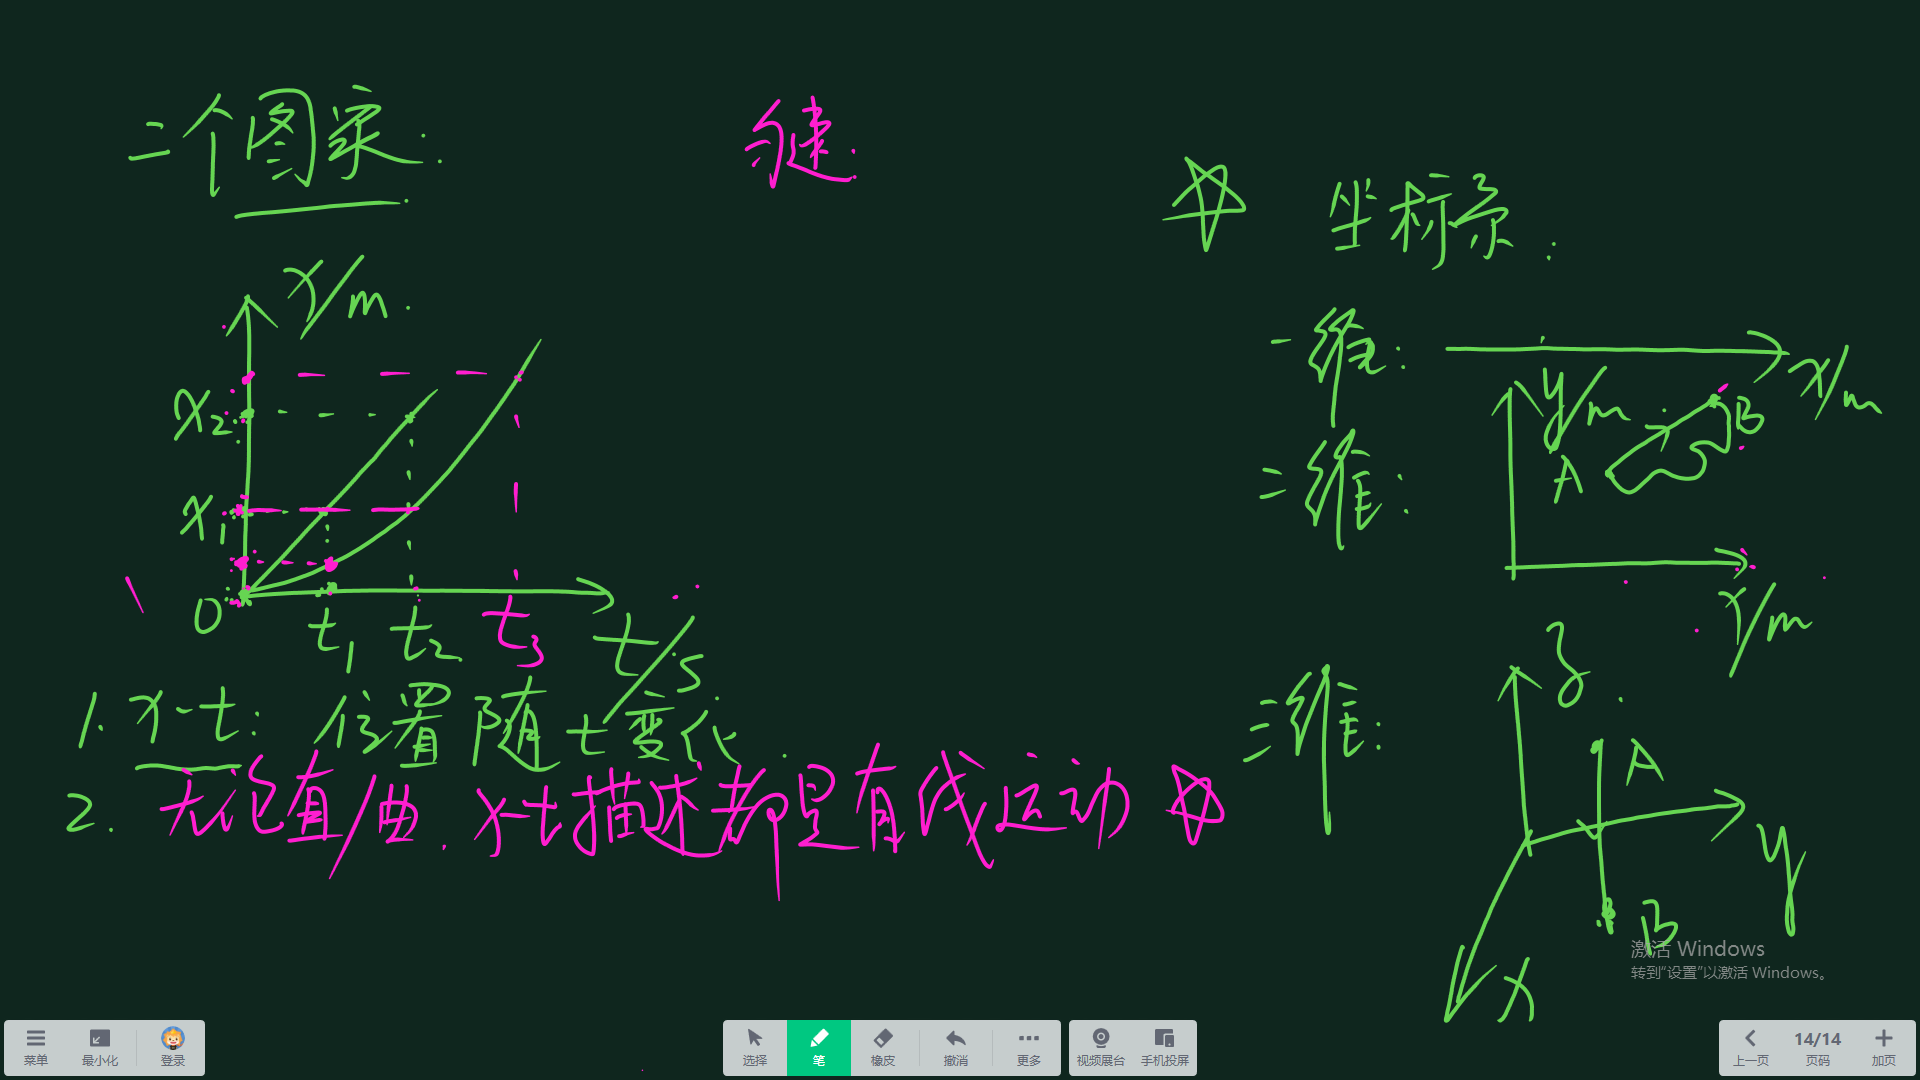 二个图象:
x/m
x₂
x₁
0
t₁ t₂ t₃ t/s
1. x-t: 位置随t变化.
2. 无论直/曲, x-t描述都是直线运动 ☆
☆ 坐标系:
一维:
x/m
二维:
y/m
A
B
x/m
三维:
z
A
y
B
x
激活 Windows
转到“设置”以激活 Windows。
菜单 最小化 登录
选择 笔 橡皮 撤消 更多
视频展台 手机投屏
上一页 14/14 页码 加页